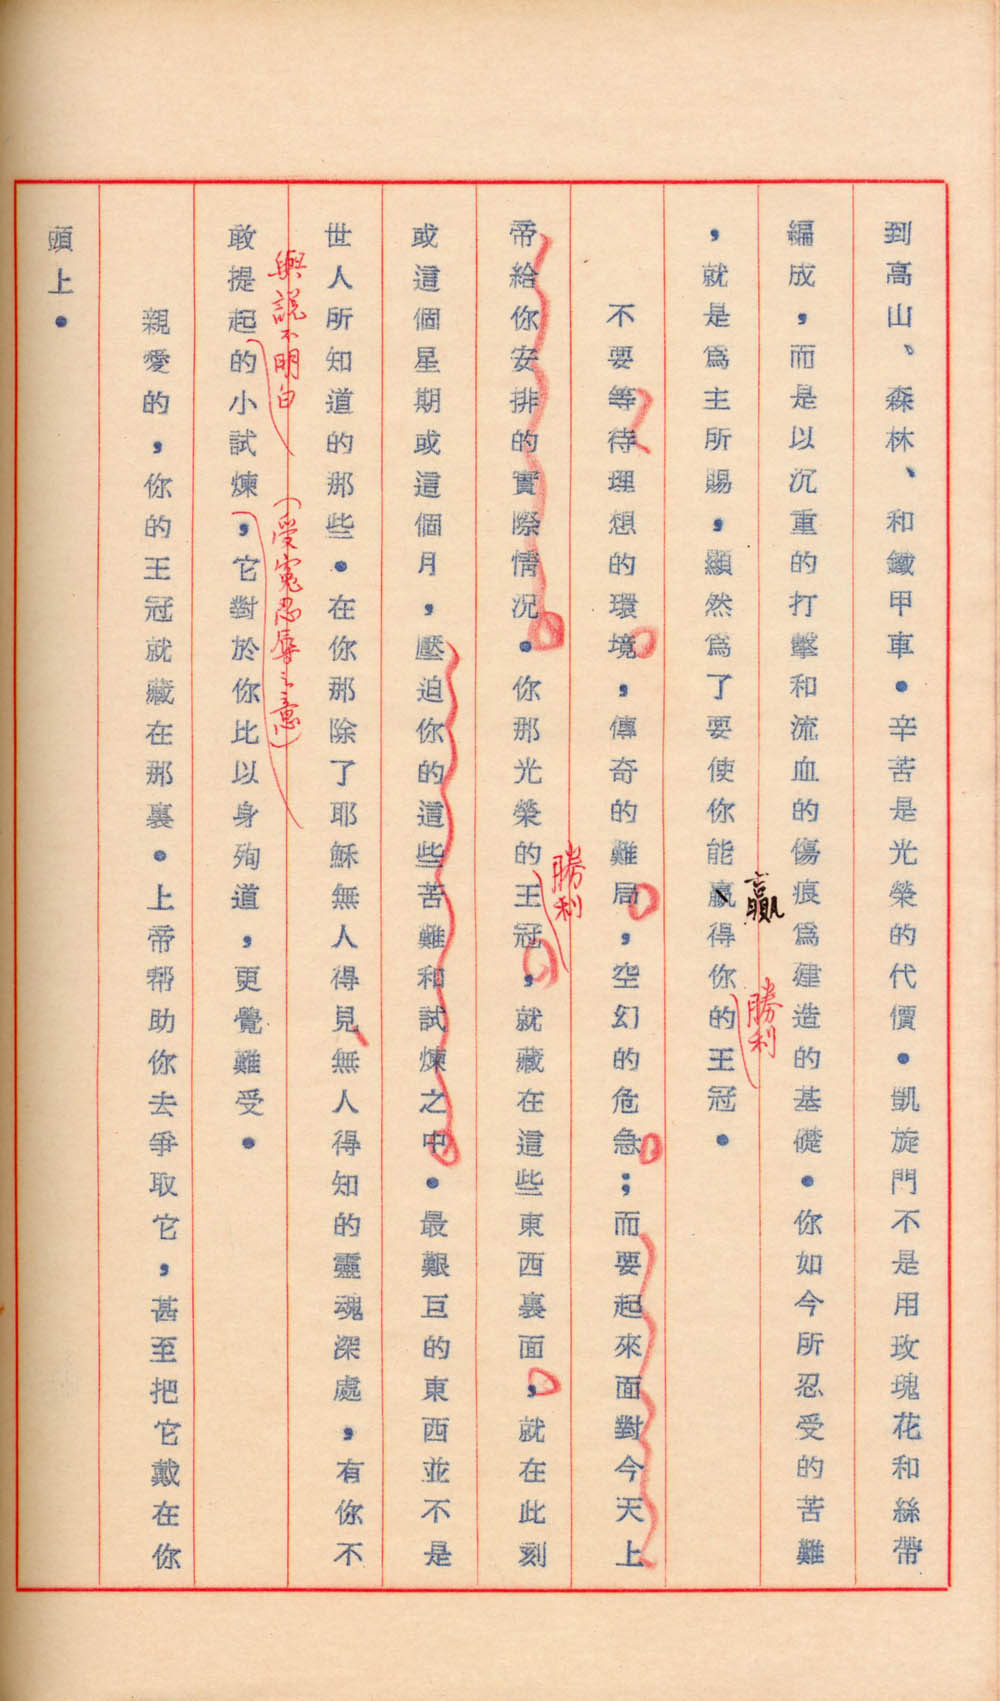 到高山、森林、和鐵甲車．辛苦是光榮的代價．凱旋門不是用玫瑰花和絲帶
編成，而是以沉重的打擊和流血的傷痕爲建造的基礎．你如今所忍受的苦難
，就是爲主所賜，顯然爲了要使你能贏得你的王冠．
贏
勝利
不要等待理想的環境，傳奇的難局，空幻的危急；而要起來面對今天上
帝給你安排的實際情況．你那光榮的王冠，就藏在這些東西裏面，就在此刻
勝利
或這個星期或這個月，壓迫你的這些苦難和試煉之中．最艱巨的東西並不是
世人所知道的那些．在你那除了耶穌無人得見無人得知的靈魂深處，有你不
敢提起的小試煉，它對於你比以身殉道，更覺難受．
與說不明白
（受冤忍辱之意）
親愛的，你的王冠就藏在那裏．上帝帮助你去爭取它，甚至把它戴在你
頭上．